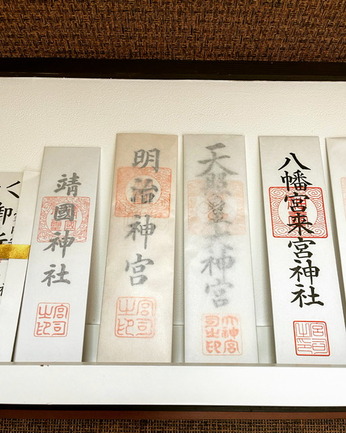 八幡宮来宮神社
宮司之印
天照皇大神宮
大神宮司之印
明治神宮
宮司之印
靖國神社
宮司之印